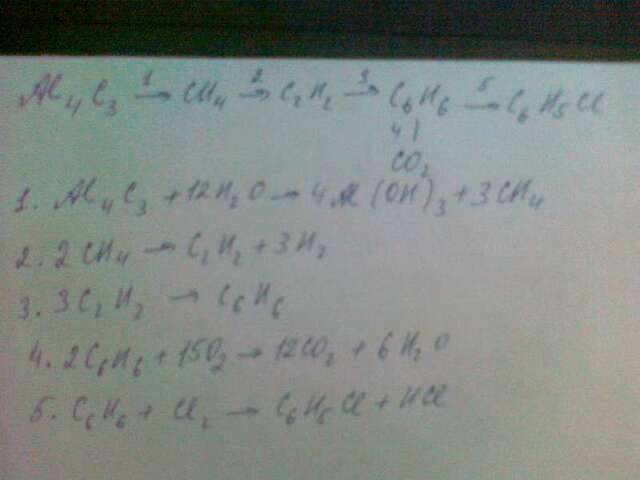 Al₄C₃ →¹ CH₄ →² C₂H₂ →³ C₆H₆ →⁵ C₆H₅Cl
4 |
CO₂
1. Al₄C₃ + 12H₂O → 4Al(OH)₃ + 3CH₄
2. 2CH₄ → C₂H₂ + 3H₂
3. 3C₂H₂ → C₆H₆
4. 2C₆H₆ + 15O₂ → 12CO₂ + 6H₂O
5. C₆H₆ + Cl₂ → C₆H₅Cl + HCl